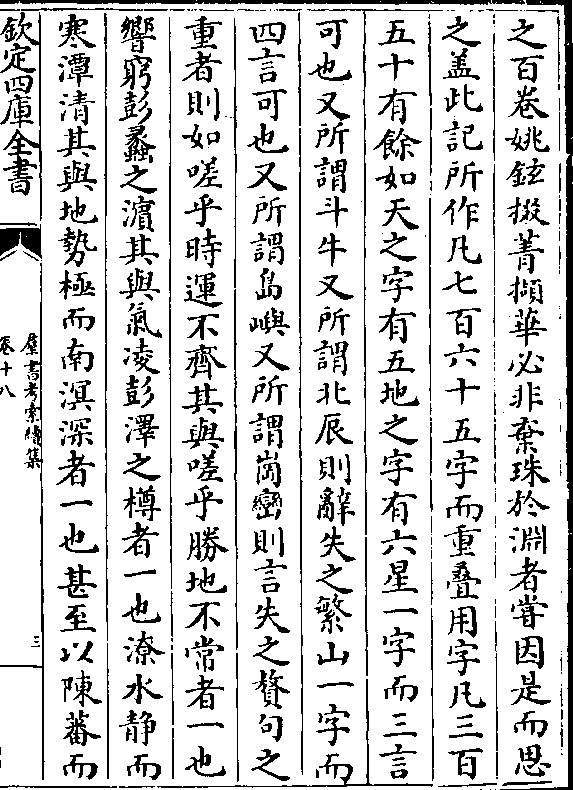 之百卷姚鉉掇菁擷華必非棄珠於淵者嘗因是而思
之盖此記所作凡七百六十五字而重疊用字凡三百
五十有餘如天之字有五地之字有六星一字而三言
可也又所謂斗牛又所謂北辰則辭失之繁山一字而
四言可也又所謂島嶼又所謂崗巒則言失之贅句之
重者則如嗟乎時運不齊其與嗟乎勝地不常者一也
響窮彭蠡之濵其與氣凌彭澤之樽者一也潦水靜而
寒潭清其與地勢極而南溟深者一也甚至以陳蕃而
欽定四庫全書
羣書考索續集
卷十八
三